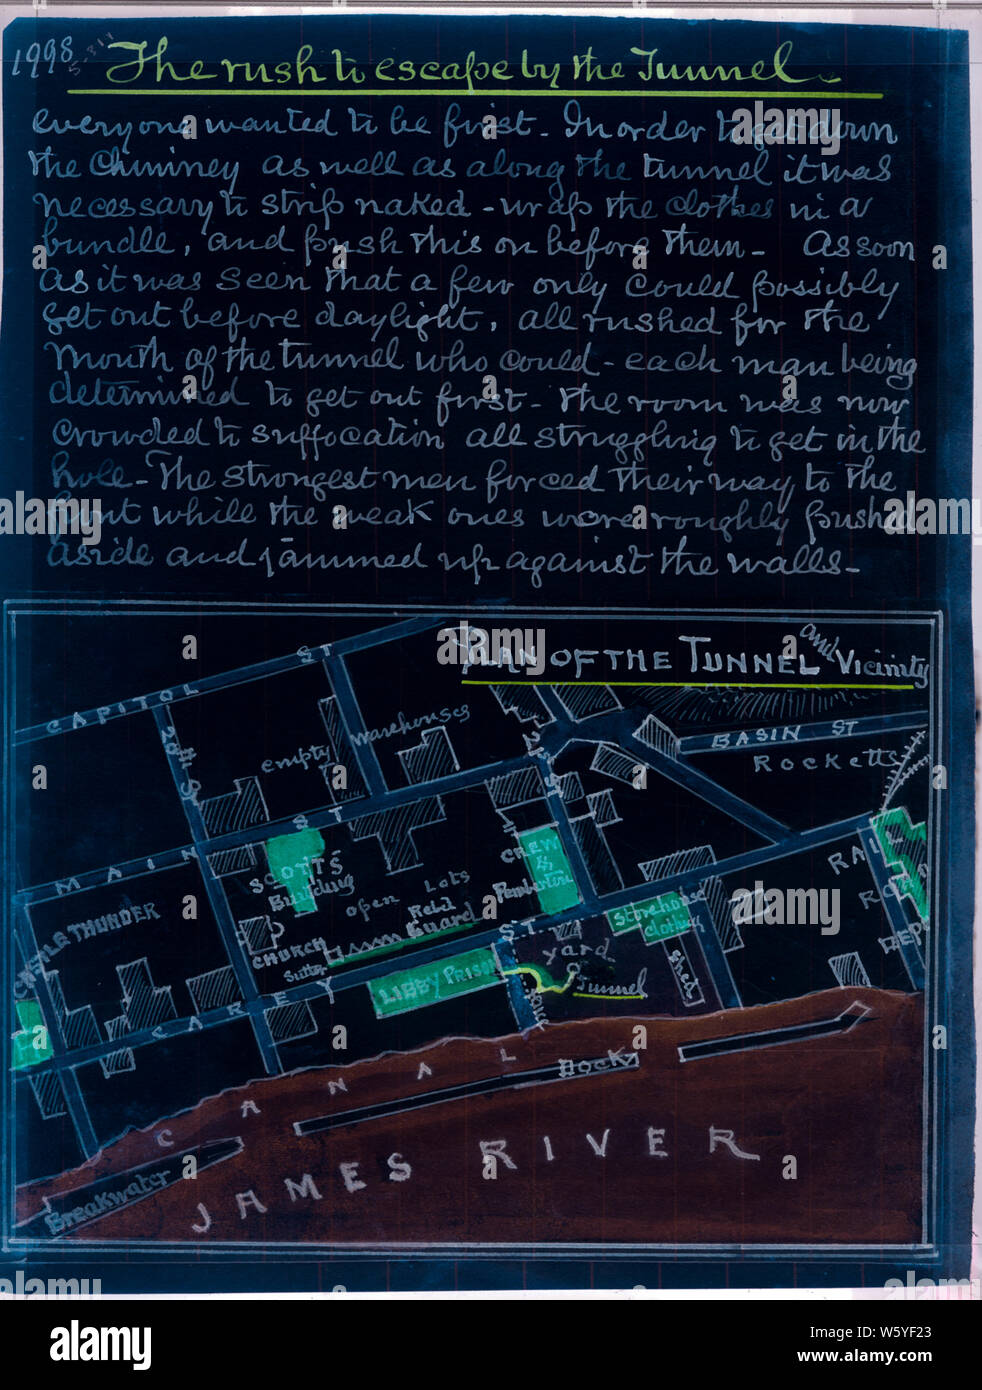 1998
The rush to escape by the Tunnel
everyone wanted to be first - In order to get down
the chimney as well as along the tunnel it was
necessary to strip naked - wrap the clothes in a
bundle, and push this on before them - As soon
as it was seen that a few only could possibly
get out before daylight, all rushed for the
mouth of the tunnel who could - each man being
determined to get out first - the room was now
crowded to suffocation all struggling to get in the
hole - The strongest men forced their way to the
front while the weak ones were roughly pushed
aside and jammed up against the walls -
PLAN OF THE TUNNEL and Vicinity
CAPITOL ST
28th ST
empty
warehouses
21 ST
BASIN ST
ROCKETTS
MAIN ST
SCOTTS
Building
open Lots
CREW
&
Pemberton
RAIL
ROAD
DEPO
CASTLE THUNDER
CHURCH
Sutler
Reb'l
Guard
Storehouse
clothing
shed
CAREY ST
LIBBY PRISON
yard
Tunnel
CANAL
DOCK
Breakwater
JAMES RIVER
alamy
Image ID: W5YF23
www.alamy.com